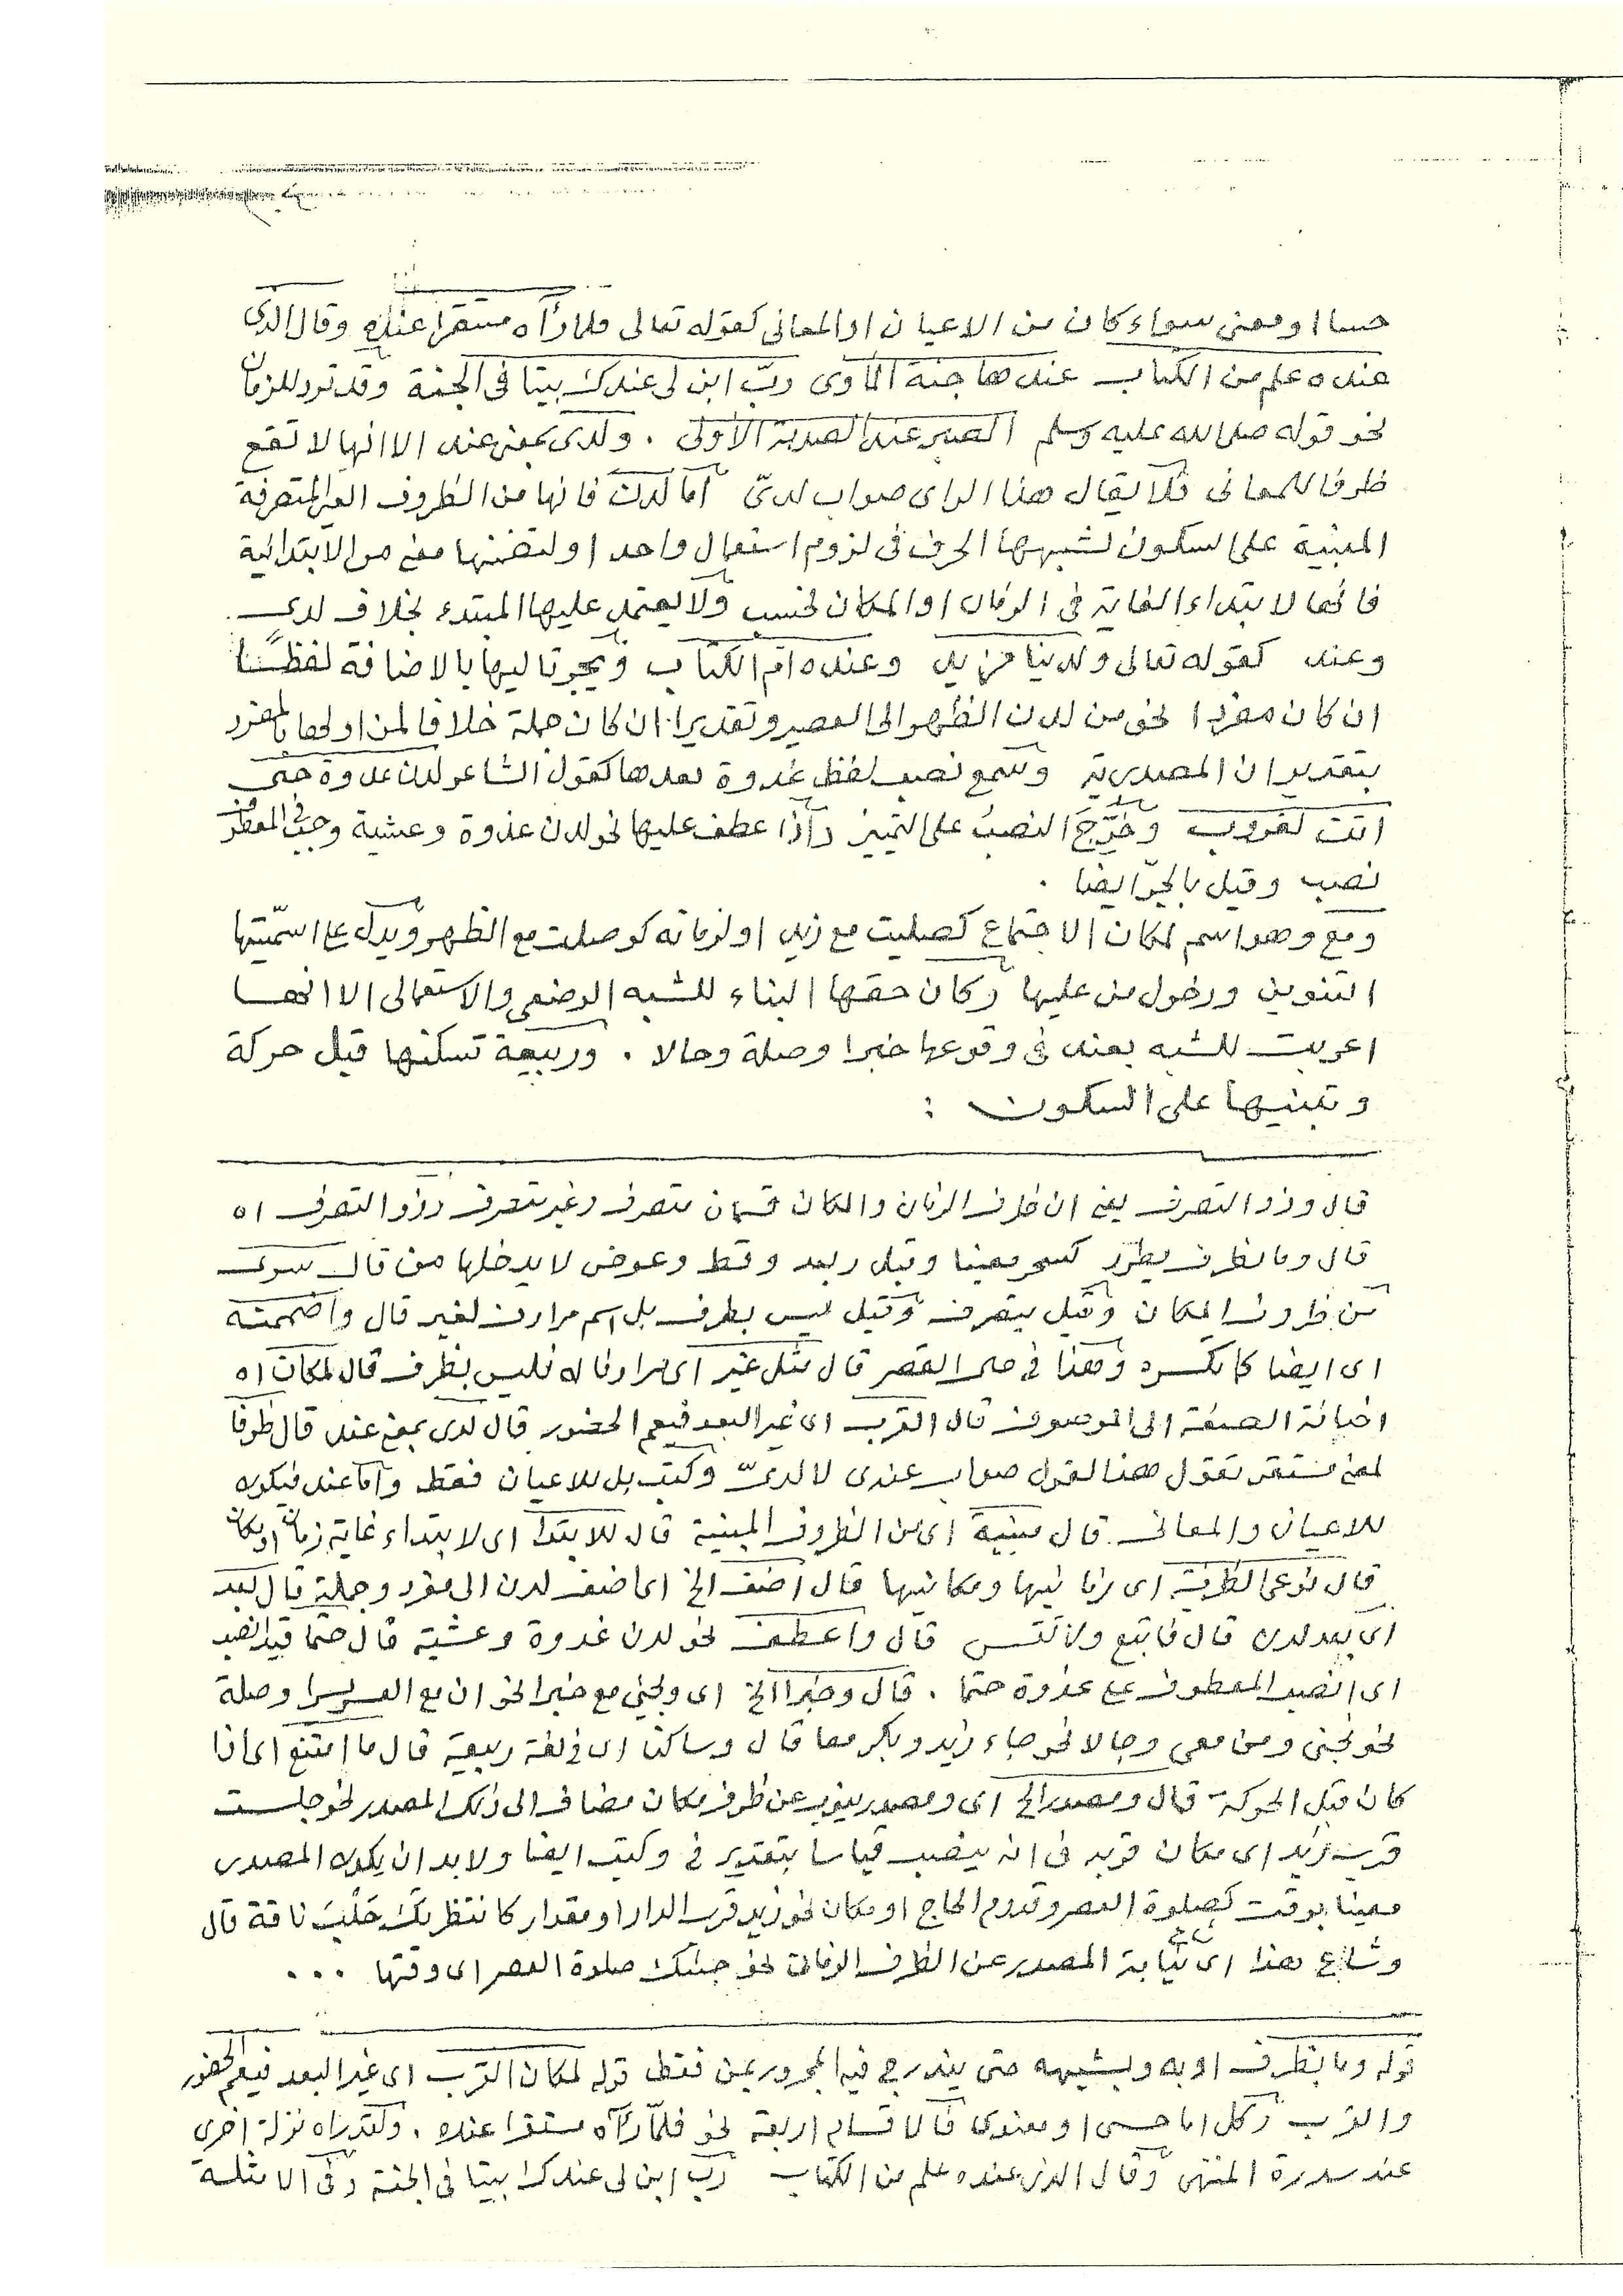 حسا او معنى سواء كان من الاعيان او المعانى كقوله تعالى فلما رآه مستقرا عنده وقال الذى
عنده علم من الكتاب عندها جنة المأوى ربّ ابن لى عندك بيتا فى الجنة وقد ترد للزمان
نحو قوله صلى الله عليه وسلم الصبر عند الصدمة الأولى . ولدى بمعنى عند الا انها لا تقع
ظرفا للمعانى فلا يقال هذا الراى صواب لدىّ أما لدن فانها من الظروف الغير المتصرفة
المبنية على السكون لشبهها الحرف فى لزوم استعمال واحد او لتضمنها معنى من الابتدائية
فانها لابتداء الغاية فى الزمان او المكان فحسب ولا يعتمد عليها المبتدء بخلاف لدى
وعند كقوله تعالى ولدينا مزيد وعنده ام الكتاب ويجر تاليها بالاضافة لفظًا
ان كان مفردا نحو من لدن الظهر الى العصير وتقديرا ان كان جملة خلافا لمن اولها بالمفرد
بتقدير ان المصدرية وسمع نصب لفظ غدوة بعدها كقول الشاعر لدن غدوة حتى
اتت لغروب وخُرِّجَ النصبُ على التميز وأذا عطف عليها نحو لدن غدوة وعشية وجب فى المعطوف
نصب وقيل بالجرّ ايضا .
ومع وهو اسم لمكان الاجتماع كصليت مع زيد او لزمانه كوصلت مع الظهر ويدل على اسمّيتها
التنوين ودخول من عليها وكان حقها البناء للشبه الوضعى والاستعمالى الا انها
اعربت للشبه بعند فى وقوعها خبرا وصلة وحالا . وربيعة تسكنها قبل حركة
وتبنيها على السكون :
قال وذو التصرف يعنى ان ظرف الزمان والمكان قسمان متصرف وغير متصرف وذو التصرف اه
قال وما لظرف يطرّد كسحر معينا وقبل وبعد وقط وعوض لا يدخلها من قال سوى
من ظروف المكان وقيل يتصرف وقيل ليس بظرف بل اسم مرادف لغير قال واضممنه
اى ايضا كما تكسره وهذا فى حال القصر قال مثل غير اى مرادفا له فليس بظرف قال لمكان اه
اضافة الصفة الى الموصوف قال القرب اى غير البعد فيعم الحضور قال لدى بمعنى عند قال ظرفا
لمعنى مستقر تقول هذا القول صواب عندى لا لدىّ وكتب بل للاعيان فقط واما عند فيكون
للاعيان والمعانى . قال مبنية اى من الظروف المبنية قال للابتدا اى لابتداء غاية زمان او مكان
قال نوعى الظرفية اى زمانيها ومكانيها قال أضف الخ اى اضف لدن الى مفرد وجملة قال بعد
اى بعد لدن قال فاتبع ولا تقس قال واعطف نحو لدن غدوة وعشية قال حتما قيد انصب
اى انصب المعطوف على غدوة حتما . قال وخبرا الخ اى ويجئ مع خبرا نحو ان مع العسر يسرا وصلة
نحو نجنى ومن معى وحالا نحو جاء زيد وبكر معا قال وساكنا اى فى لغة ربيعة قال ما امتنع اى اذا
كان قبل الحركة قال ومصدر الخ اى ومصدر ينوب عن ظرف مكان مضاف الى ذلك المصدر نحو جلست
قرب زيد اى مكان قربه فى انه ينصب قياسا بتقدير فى وكتب ايضا ولا بد ان يكون المصدر
معينا بوقت كصلوة العصر وقدوم الحاج او مكان نحو زيد قرب الدار او مقدار كانتظرتك حَلْبَ ناقة قال
وشاع هذا اى نيابة المصدر عن الظرف الزمان نحو جئتك صلوة العصر اى وقتها ...
قوله وما لظرف او به وبشبهه حتى يندرج فيه المجرور بمن فقط قوله لمكان القرب اى غير البعد فيعم الحضور
والقرب وكل اما حسى او معنوى فالاقسام اربعة نحو فلمّا رآه مستقرا عنده . ولقد رآه نزلة اخرى
عند سدرة المنتهى وقال الذى عنده علم من الكتاب رب ابن لى عندك بيتا فى الجنة وفى الامثلة